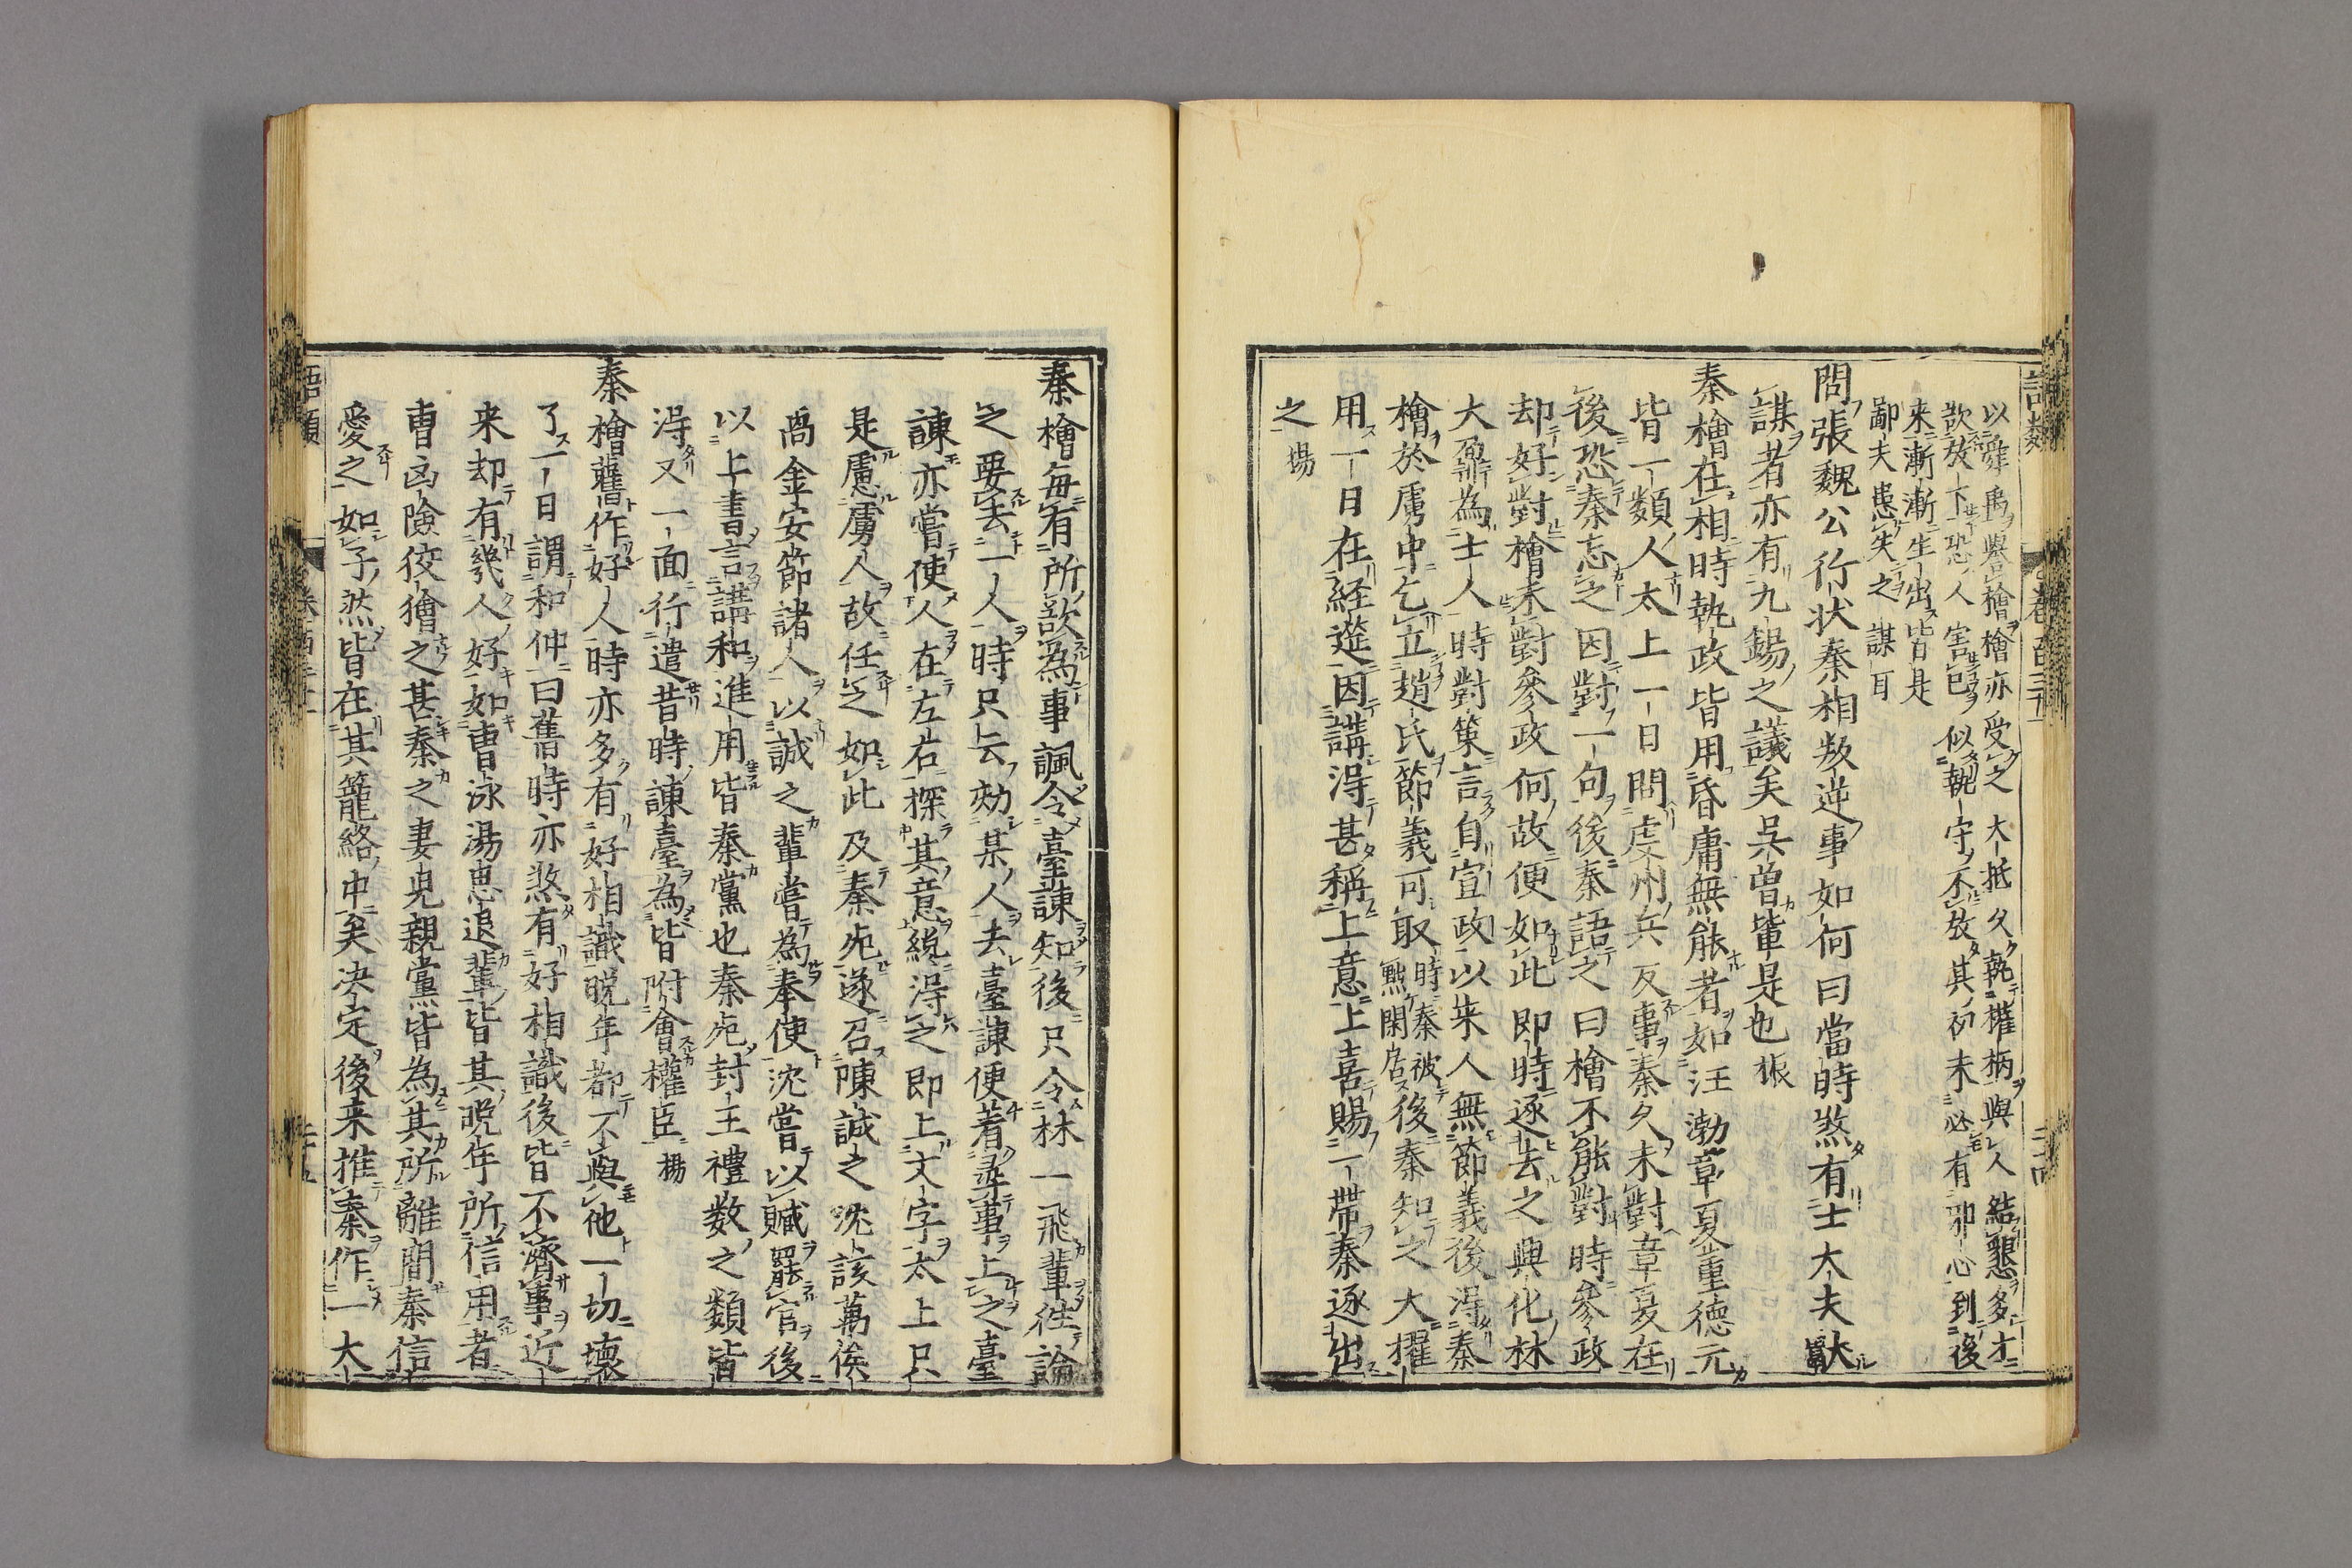 語類 卷百三十一 二十四
以舜禹譽檜檜亦受之大抵久執權柄與人結懇多才
欲放下恐人害已似執守不放其初未必有邪心到後
来漸漸生出皆是
鄙夫患失之謀耳
問張魏公行状秦相叛逆事如何曰當時煞有士大夫獻
謀者亦有九錫之議矣呉曽輩是也振
秦檜在相時執政皆用昏庸無能者如汪渤章夏董德元
皆一類人太上一日問虔州兵反事秦久未對章夏在
後恐秦忘之因對一句後秦語之曰檜不能對時參政
却好對檜未對參政何故便如此即時逐去之與化林
大鼐為士人時對策言自宣政以来人無節義後淂秦
檜於虜中乞立趙氏節義可取時秦被黜閑居後秦知之大擢
用一日在経筵因講淂甚稱上意上喜賜一帶秦逐出
之揚
秦檜毎有所欲為事諷令臺諫知後只令林一飛輩徃論
之要去一人時只云効某人去臺諫便着尋事上之臺
諫亦嘗使人在左右探其意纔淂之即上文字太上只
是慮虜人故任之如此及秦死遂召陳誠之沈該萬俟
卨金安節諸人以誠之輩嘗為奉使沈嘗以贓罷官後
以上書言講和進用皆秦黨也秦死封王禮数之類皆
淂又一面行遣昔時諫臺為皆附會權臣揚
秦檜舊作好人時亦多有好相識晩年都不與他一切壞
了一日謂和仲曰舊時亦煞有好相識後皆不濟事近
来却有幾人好如曹泳湯思退輩皆其晩年所信用者
曹凶險佼獪之甚秦之妻皃親黨皆為其所離間秦信
愛之如子然皆在其籠絡中矣决定後来推秦作一大
語類